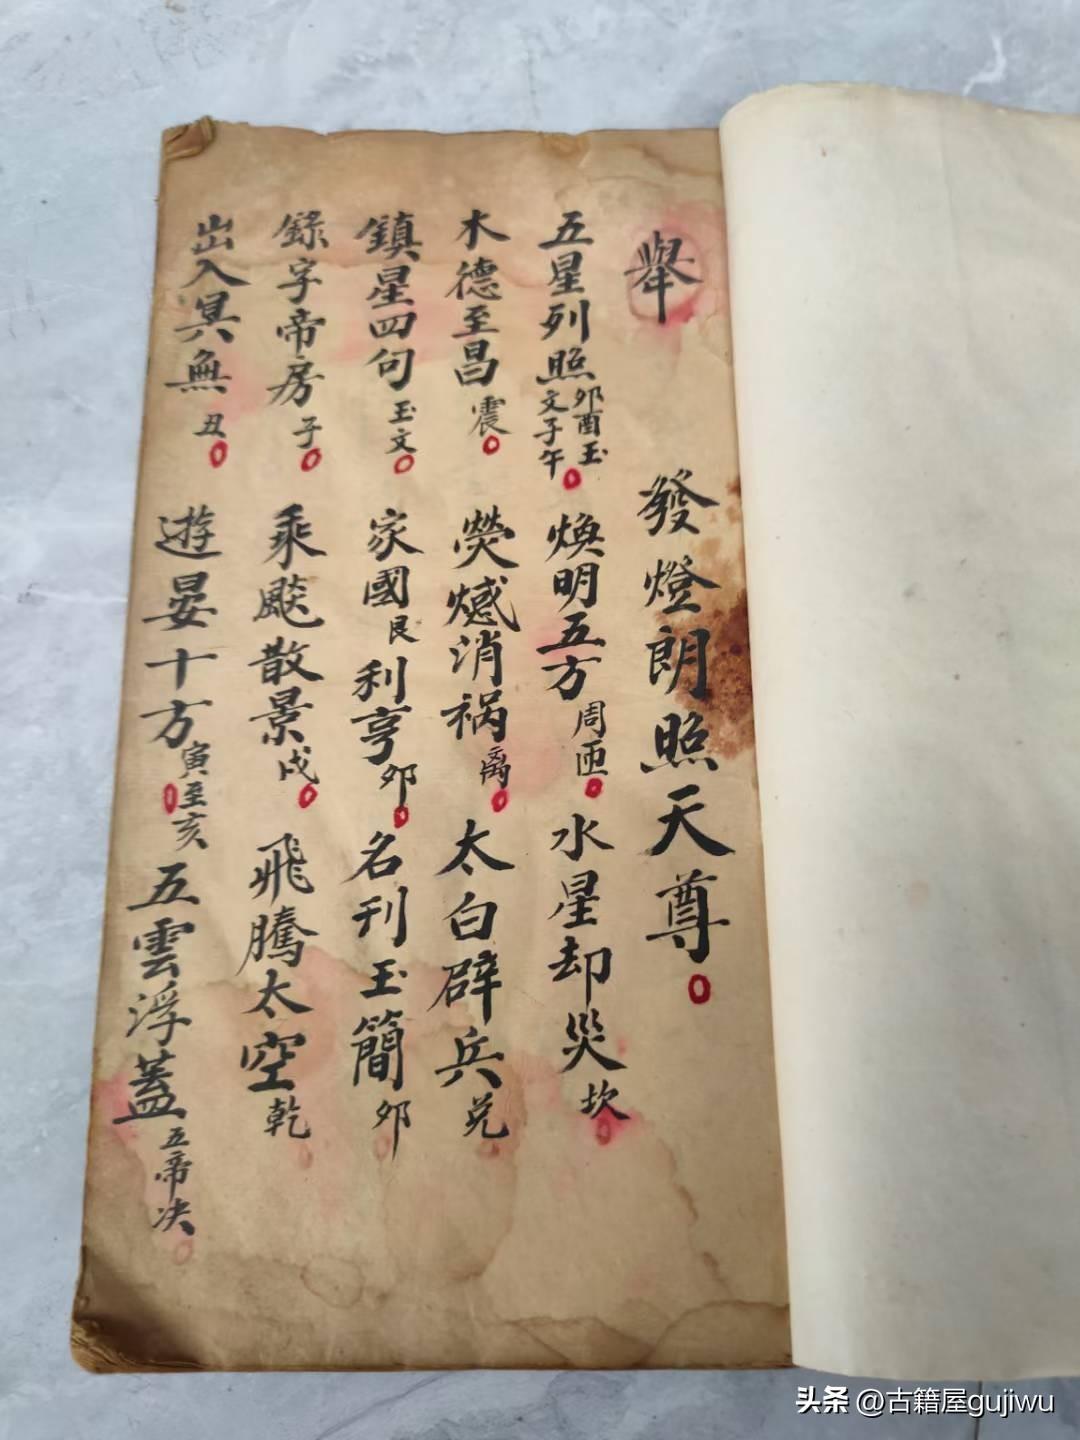 舉 發燈朗照天尊
五星列照卯酉玉文子午 煥明五方周匝 水星却災坎
木德至昌震 熒憾消祸离 太白辟兵兑
鎮星四句玉文 家國艮利亨卯 名刊玉簡卯
錄字帝房子 乘飈散景戌 飛騰太空乾
出入冥無丑 遊晏十方寅至亥 五雲浮蓋五帝决
头条 @古籍屋gujiwu